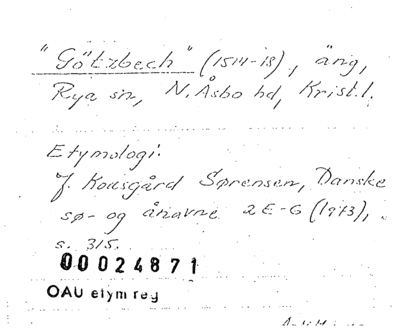 "Götzbech" (1514-18), äng,
Rya sn, N. Åsbo hd, Krist.l.
Etymologi:
Jf. Kousgård Sørensen, Danske
sø- og ånavne 2E-G (1973),
s. 315.
00024871
OAU etym reg